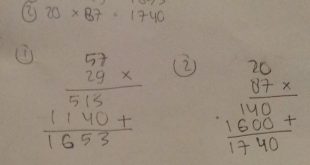 ② 20 × 87 = 1740
①
57
29 ×
513
1140 +
1653
②
20
87 ×
140
1600 +
1740